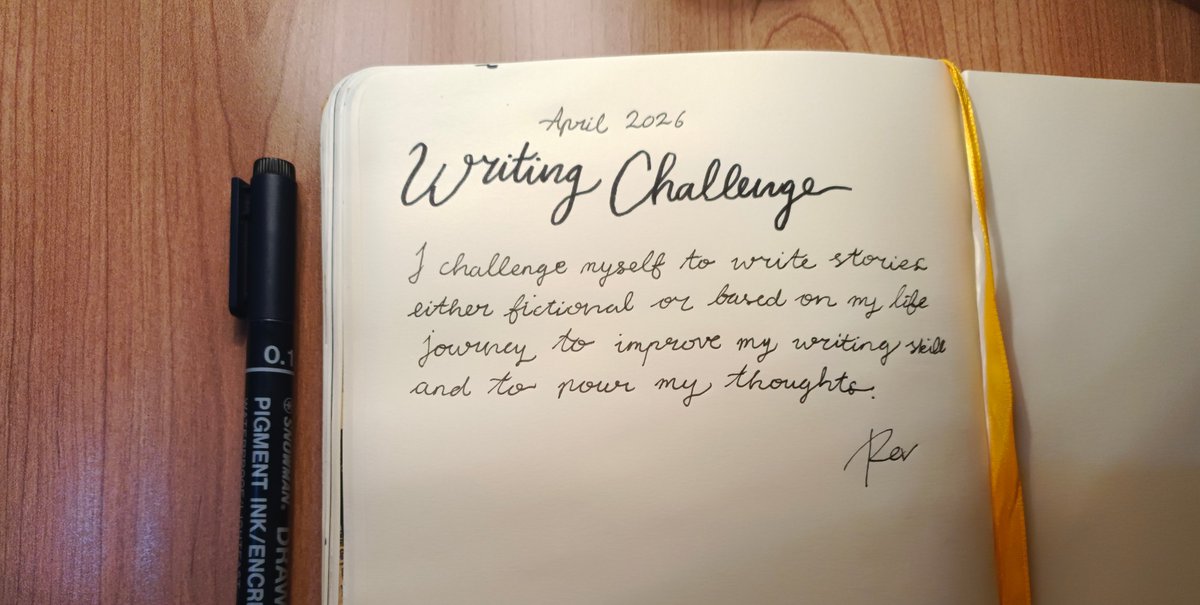 April 2026
Writing Challenge
I challenge myself to write stories
either fictional or based on my life
journey to improve my writing skill
and to pour my thoughts.
Rev
0.1
SNOWMAN. DRAW
PIGMENT INK/ENCR